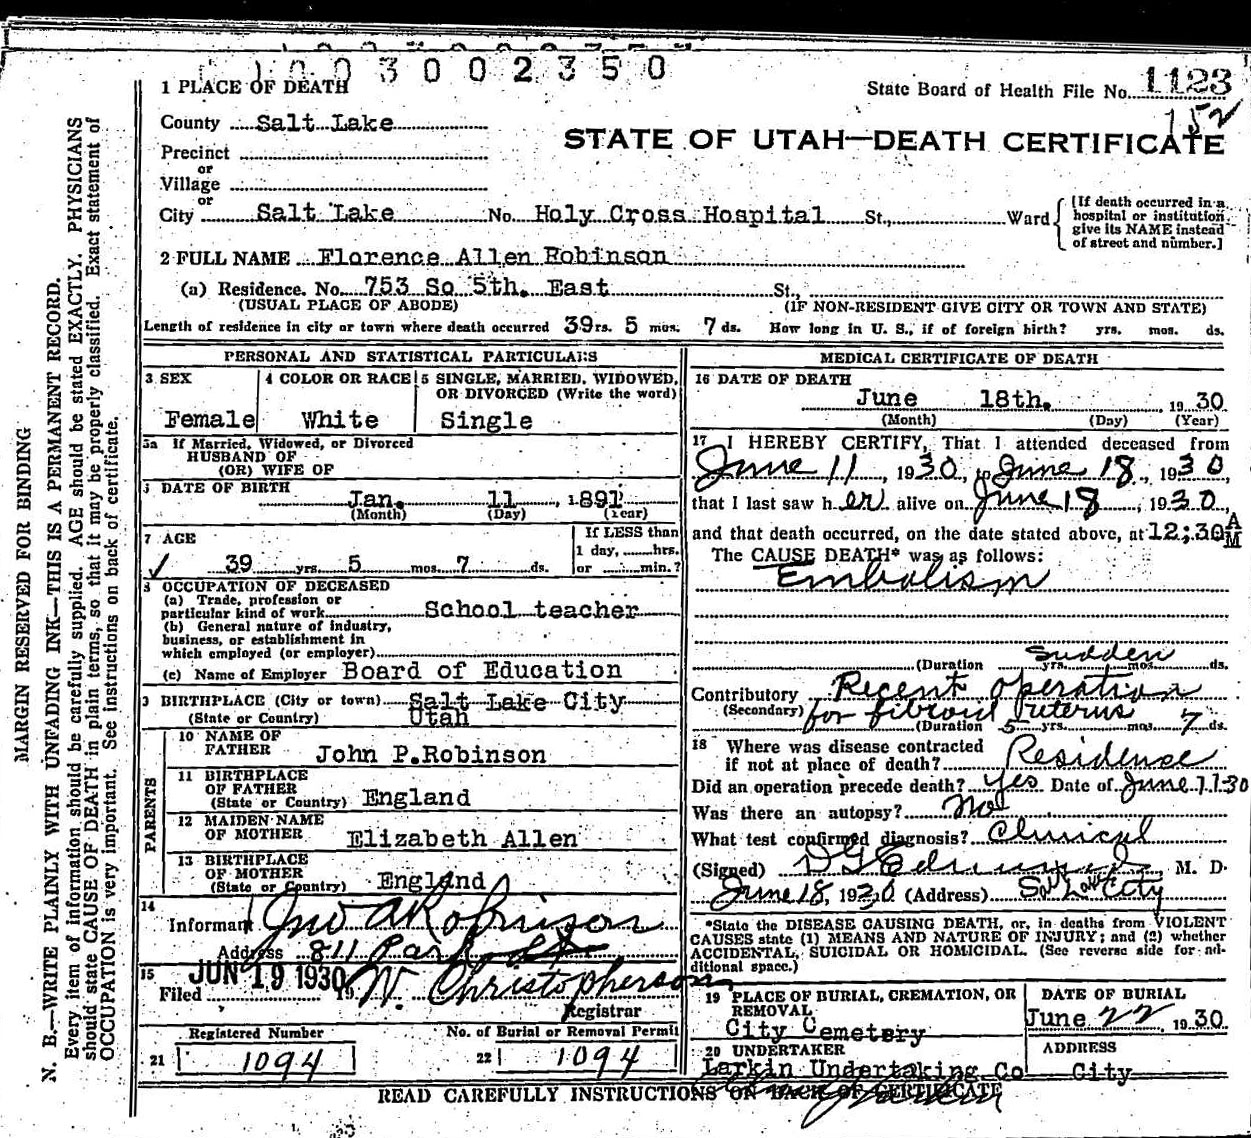 1003002350
1 PLACE OF DEATH
State Board of Health File No. 1123
152
County Salt Lake
STATE OF UTAH—DEATH CERTIFICATE
Precinct
or
Village
or
City Salt Lake No. Holy Cross Hospital St., Ward
[If death occurred in a
hospital or institution
give its NAME instead
of street and number.]
2 FULL NAME Florence Allen Robinson
(a) Residence. No. 753 So 5th. East St.,
(USUAL PLACE OF ABODE) (IF NON-RESIDENT GIVE CITY OR TOWN AND STATE)
Length of residence in city or town where death occurred 39 rs. 5 mos. 7 ds. How long in U. S., if of foreign birth? yrs. mos. ds.
PERSONAL AND STATISTICAL PARTICULARS
3 SEX
Female
4 COLOR OR RACE
White
5 SINGLE, MARRIED, WIDOWED,
OR DIVORCED (Write the word)
Single
5a If Married, Widowed, or Divorced
HUSBAND OF
(OR) WIFE OF
DATE OF BIRTH
Jan. 11 1891
(Month) (Day) (Year)
7 AGE
39 yrs. 5 mos. 7 ds.
If LESS than
1 day, hrs.
or min.?
8 OCCUPATION OF DECEASED
(a) Trade, profession or
particular kind of work School teacher
(b) General nature of industry,
business, or establishment in
which employed (or employer)
(c) Name of Employer Board of Education
9 BIRTHPLACE (City or town) Salt Lake City
(State or Country) Utah
PARENTS
10 NAME OF
FATHER John P.Robinson
11 BIRTHPLACE
OF FATHER
(State or Country) England
12 MAIDEN NAME
OF MOTHER Elizabeth Allen
13 BIRTHPLACE
OF MOTHER
(State or Country) England
14
Informant Jno A Robinson
Address 811 Park
15 JUN 19 1930
Filed 19 W. Christopherson
Registrar
Registered Number
21 1094
No. of Burial or Removal Permit
22 1094
MEDICAL CERTIFICATE OF DEATH
16 DATE OF DEATH
June 18th. 1930
(Month) (Day) (Year)
17 I HEREBY CERTIFY, That I attended deceased from
June 11, 1930, to June 18, 1930,
that I last saw her alive on June 18, 1930,
and that death occurred, on the date stated above, at 12;30 AM
The CAUSE DEATH* was as follows:
Embolism
Sudden
(Duration yrs. mos. ds.
Contributory Recent operation
(Secondary) for fibroid uterus
(Duration 5 yrs. mos. 7 ds.
18 Where was disease contracted
if not at place of death? Residence
Did an operation precede death? yes Date of June 11.30
Was there an autopsy? No
What test confirmed diagnosis? Clinical
(Signed) M. D.
June 18, 1930 (Address) Salt Lake City
*State the DISEASE CAUSING DEATH, or, in deaths from VIOLENT
CAUSES state (1) MEANS AND NATURE OF INJURY; and (2) whether
ACCIDENTAL, SUICIDAL OR HOMICIDAL. (See reverse side for ad-
ditional space.)
19 PLACE OF BURIAL, CREMATION, OR
REMOVAL
City Cemetery
DATE OF BURIAL
June 22, 1930
20 UNDERTAKER
Larkin Undertaking Co
ADDRESS
City
READ CAREFULLY INSTRUCTIONS ON BACK OF CERTIFICATE
MARGIN RESERVED FOR BINDING
N. B.—WRITE PLAINLY WITH UNFADING INK—THIS IS A PERMANENT RECORD.
Every item of information should be carefully supplied. AGE should be stated EXACTLY. PHYSICIANS
should state CAUSE OF DEATH in plain terms, so that it may be properly classified. Exact statement of
OCCUPATION is very important. See instructions on back of certificate.